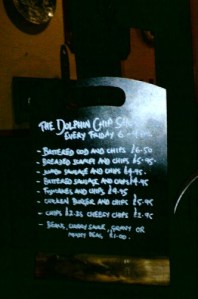 THE DOLPHIN CHIP
EVERY FRIDAY 6
- BATTERED COD AND CHIPS £6.50
- BREADED SCAMPI AND CHIPS £5.95
- JUMBO SAUSAGE AND CHIPS £4.95
- BATTERED SAUSAGE AND CHIPS £4.95
- FISHCAKES AND CHIPS £4.95
- CHICKEN BURGER AND CHIPS £5.95
- CHIPS £2.25 CHEESY CHIPS £2.95
- BEANS, CURRY SAUCE, GRAVY OR
MUSHY PEAS, £1.00.